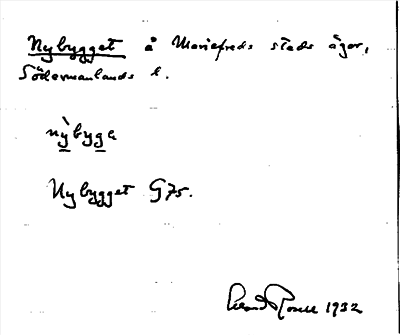 Nybygget å Mariefreds stads ägor,
Södermanlands l.
nỳbyge
Nybygget G75.
1932